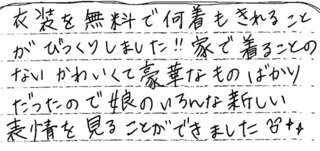 衣装を無料で何着もきれること
がびっくりしました!!家で着ることの
ないかわいくて豪華なものばかり
だったので娘のいろんな新しい
表情を見ることができました